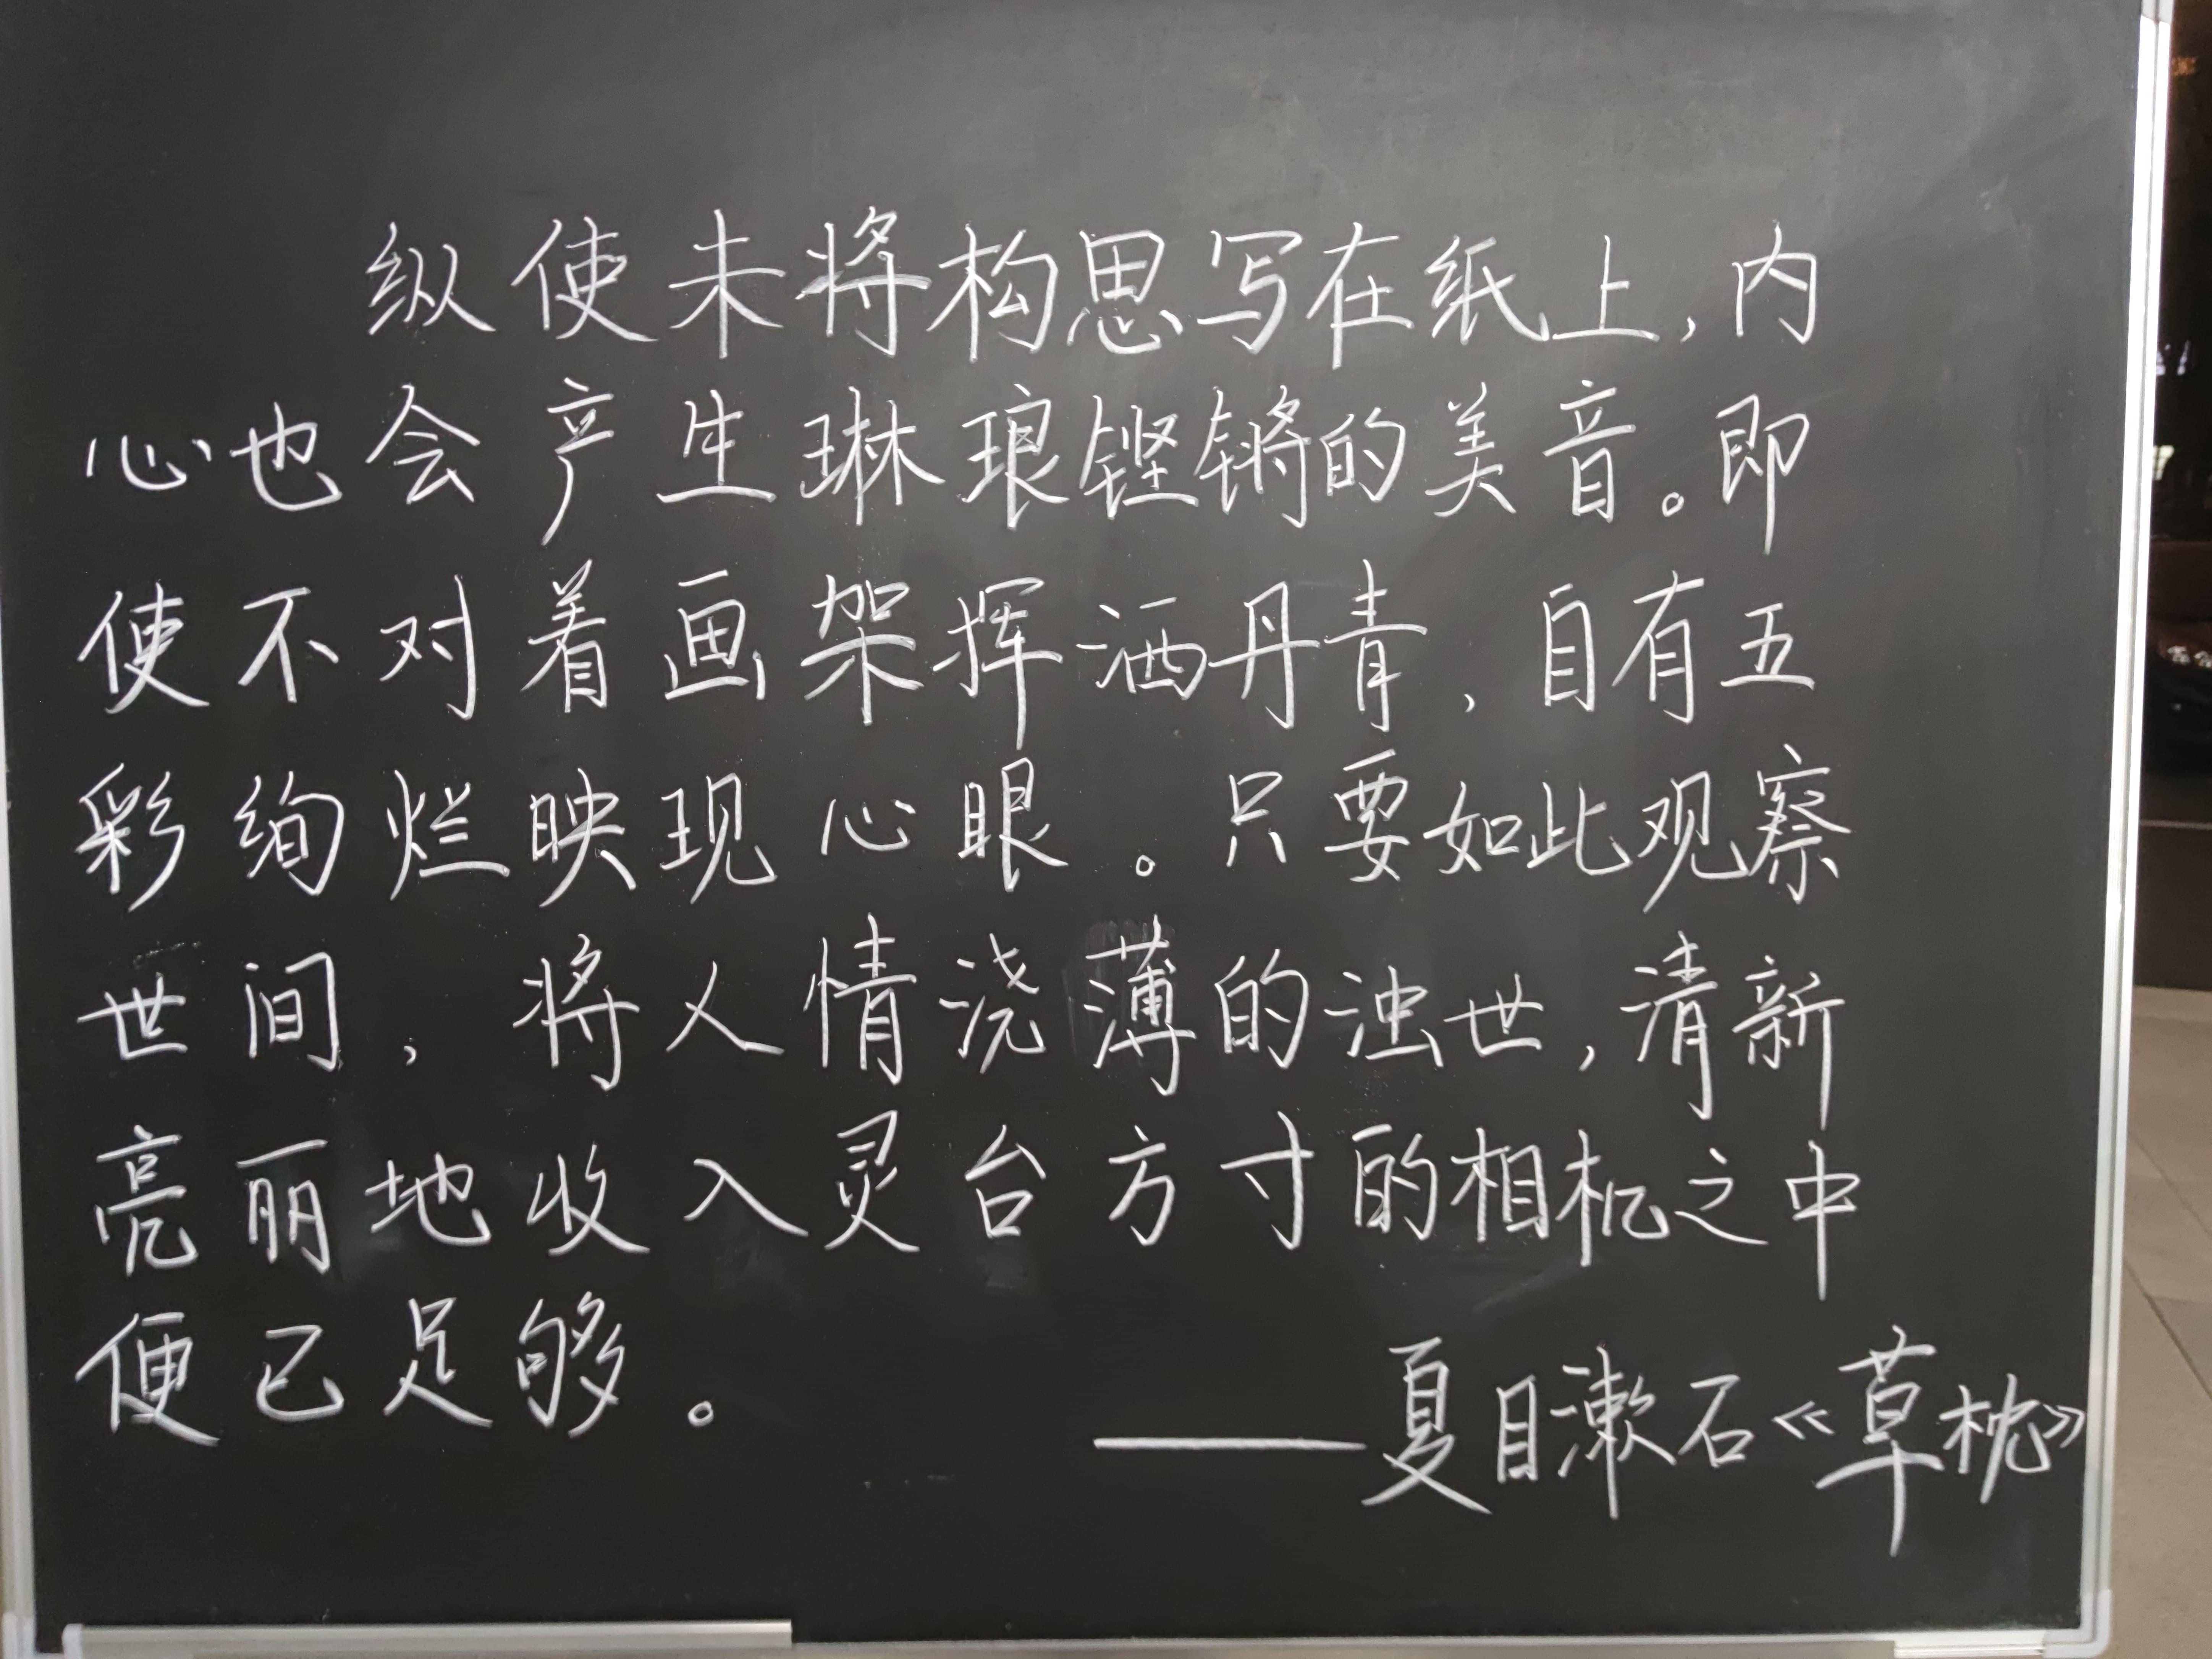 纵使未将构思写在纸上，内
心也会产生琳琅铿锵的美音。即
使不对着画架挥洒丹青，自有五
彩绚烂映现心眼。只要如此观察
世间，将人情浇薄的浊世，清新
亮丽地收入灵台方寸的相机之中
便已足够。
——夏目漱石《草枕》